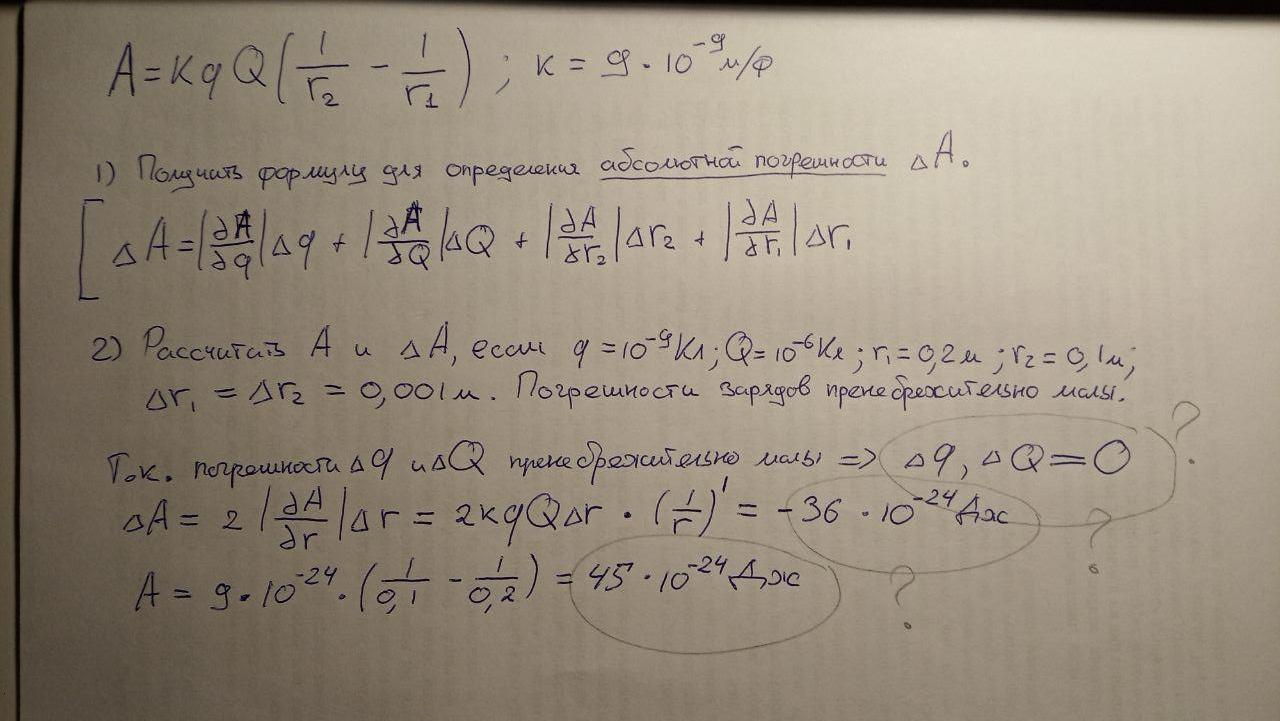 A = kqQ(1/r₂ - 1/r₁) ; k = 9 · 10⁻⁹ м/Ф
1) Получить формулу для определения абсолютной погрешности ΔA.
[ ΔA = |∂A/∂q|Δq + |∂A/∂Q|ΔQ + |∂A/∂r₂|Δr₂ + |∂A/∂r₁|Δr₁
2) Рассчитать A и ΔA, если q = 10⁻⁹Кл; Q = 10⁻⁶Кл; r₁ = 0,2м; r₂ = 0,1м;
Δr₁ = Δr₂ = 0,001м. Погрешности зарядов пренебрежительно малы.
Т.к. погрешности Δq и ΔQ пренебрежительно малы => Δq, ΔQ = 0 ?
ΔA = 2|∂A/∂r|Δr = 2kqQΔr · (1/r)' = -36 · 10⁻²⁴ Дж ?
A = 9 · 10⁻²⁴ · (1/0,1 - 1/0,2) = 45 · 10⁻²⁴ Дж ?